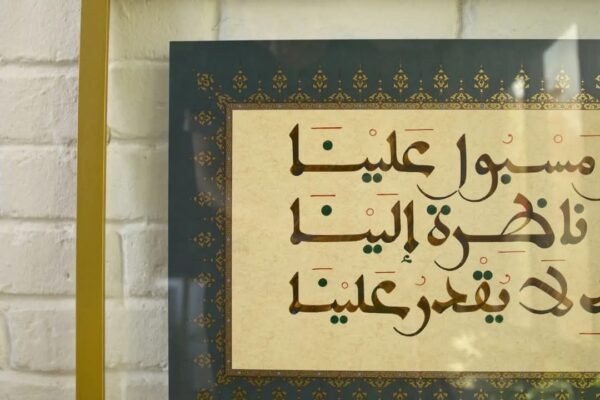 مسبول علينا
ناظرة إلينا
لا يقدر علينا